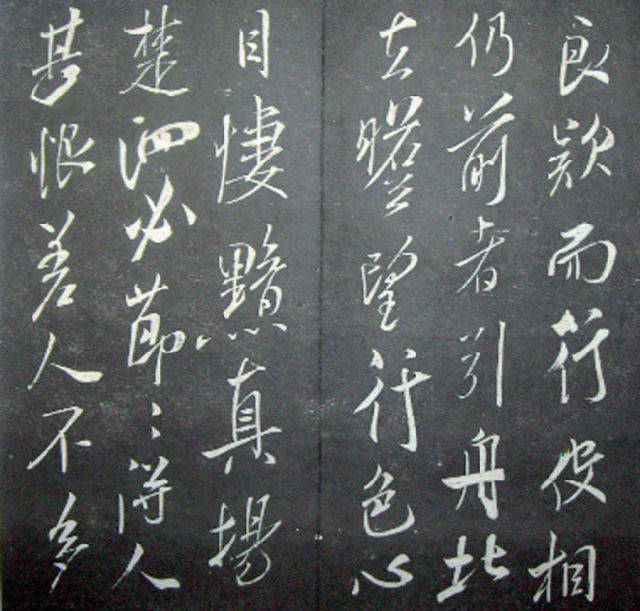 良欵而行役相
仍前者引舟北
去望行色心
目悽黯真揚
楚泗必節〻得人
甚恨差人不多